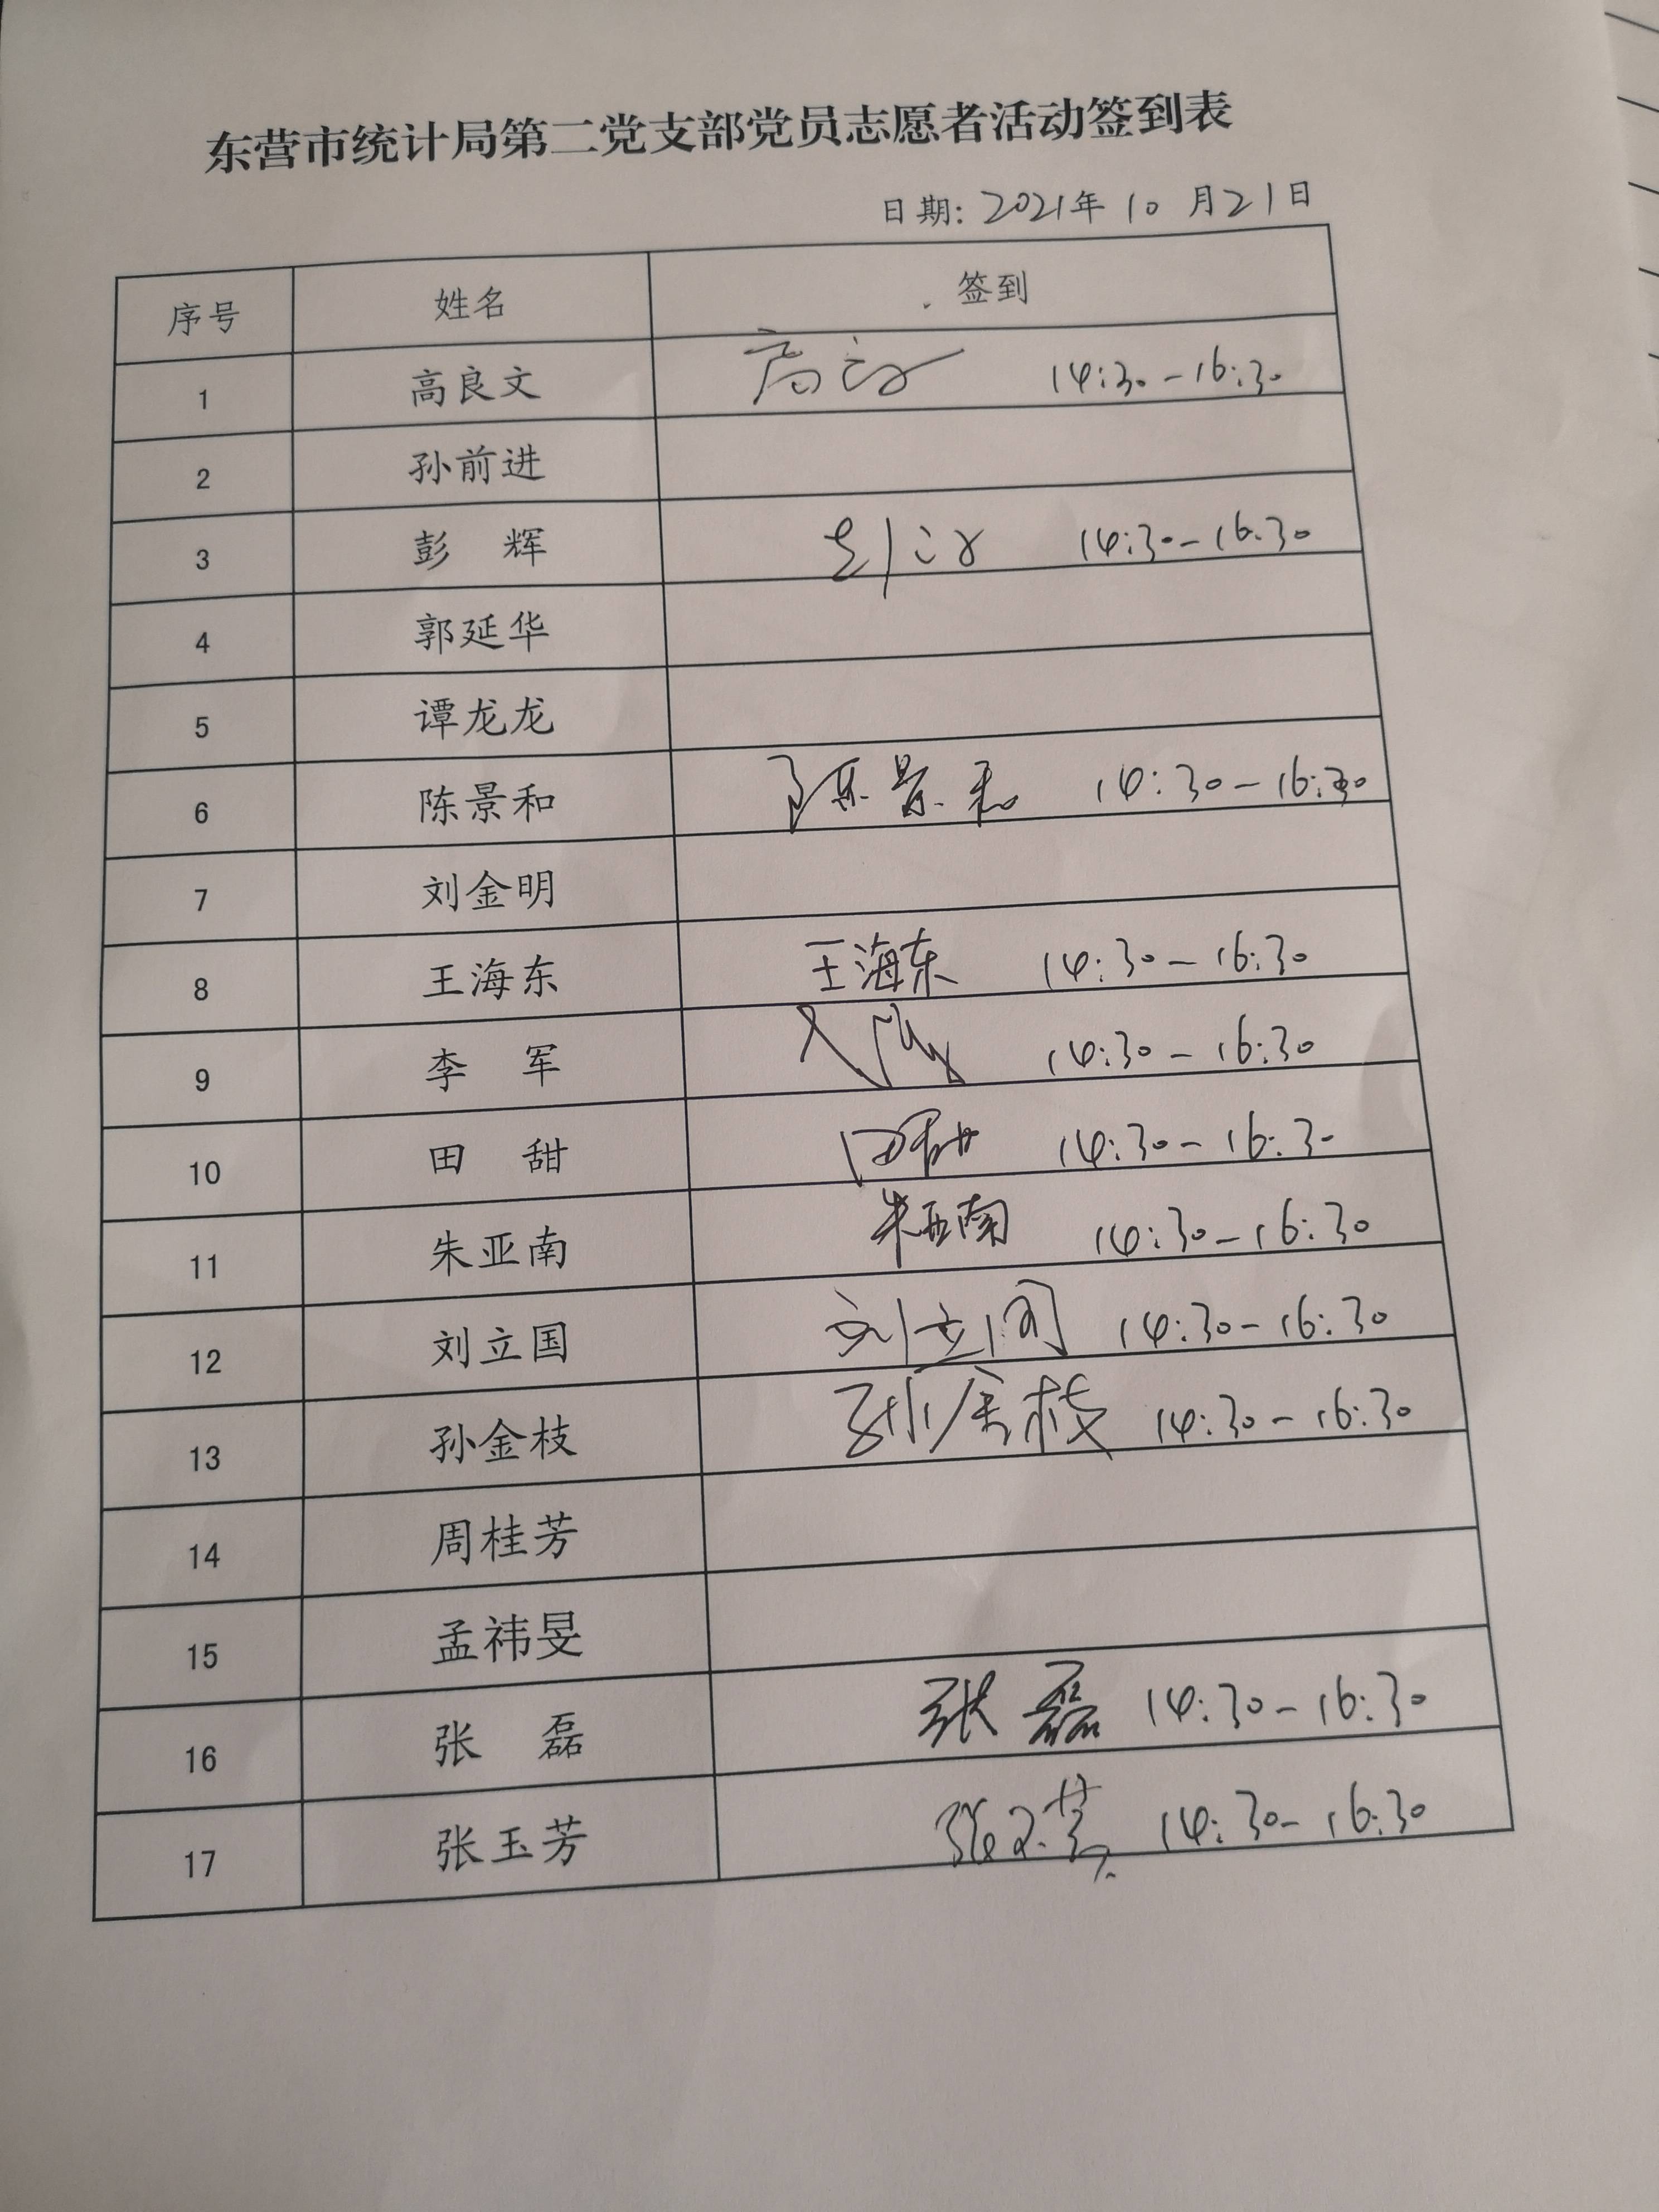 东营市统计局第二党支部党员志愿者活动签到表
日期: 2021年 10 月21日
序号 姓名 签到
1 高良文 14:30-16:30
2 孙前进
3 彭 辉 14:30-16:30
4 郭延华
5 谭龙龙
6 陈景和 陈景和 14:30-16:30
7 刘金明
8 王海东 王海东 14:30-16:30
9 李 军 14:30-16:30
10 田 甜 田甜 14:30-16:30
11 朱亚南 朱亚南 14:30-16:30
12 刘立国 刘立国 14:30-16:30
13 孙金枝 孙金枝 14:30-16:30
14 周桂芳
15 孟祎旻
16 张 磊 张磊 14:30-16:30
17 张玉芳 张玉芳 14:30-16:30